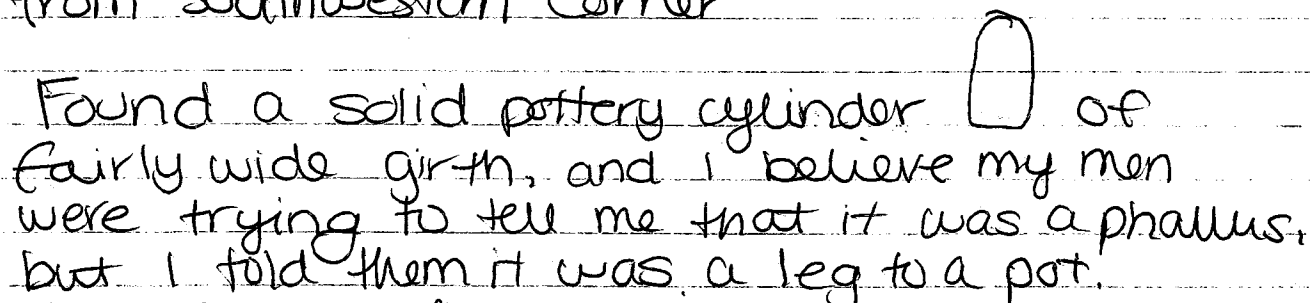 from southwestern corner
Found a solid pottery cylinder of
fairly wide girth, and I believe my men
were trying to tell me that it was a phallus,
but I told them it was a leg to a pot.